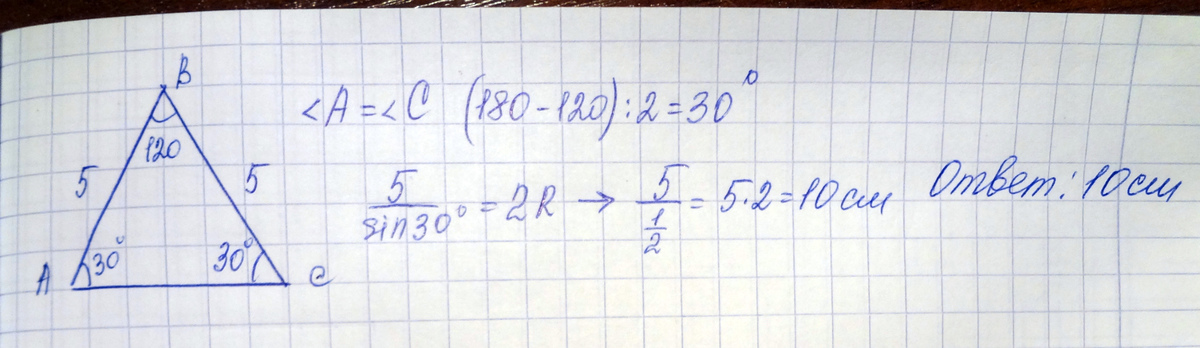 B
120
5
5
30°
30°
A
C
<A = <C (180 - 120) : 2 = 30°
5/sin30° = 2R → 5/(1/2) = 5·2 = 10 см
Ответ: 10 см